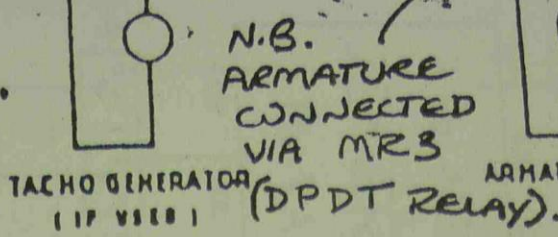 N.B.
ARMATURE
CONNECTED
VIA MR3
(DPDT RELAY).
TACHO GENERATOR
(IF USED)
ARMA